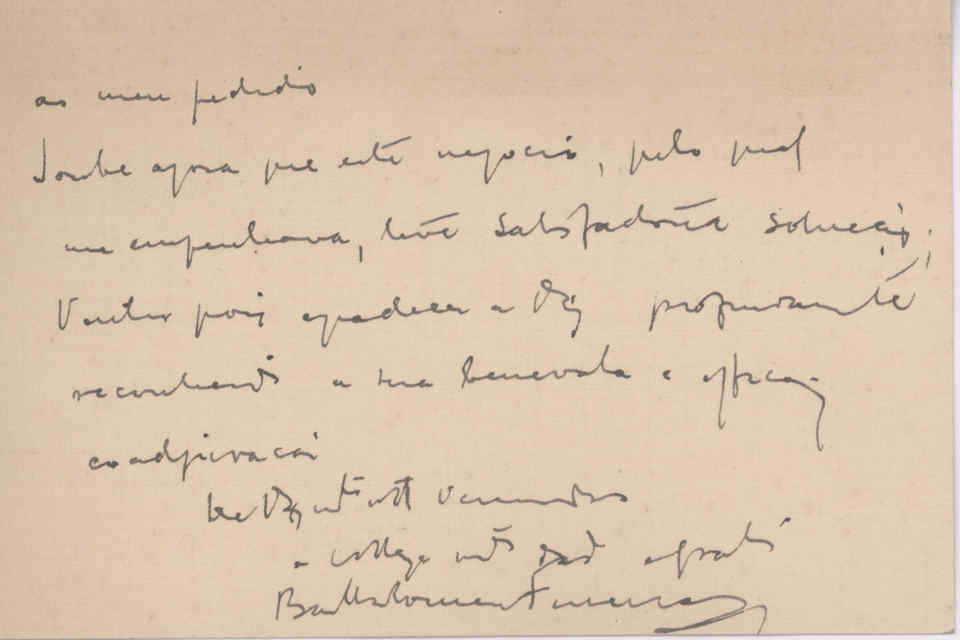 ao meu pedido
Soube agora que este negocio, pelo qual
me empenhava, teve satisfactoria solução;
Venho pois agradecer a V. Ex.ª profundamente
reconhecido a sua benevola e efficaz
coadjuvação
De V. Ex.ª
e collega obrigado